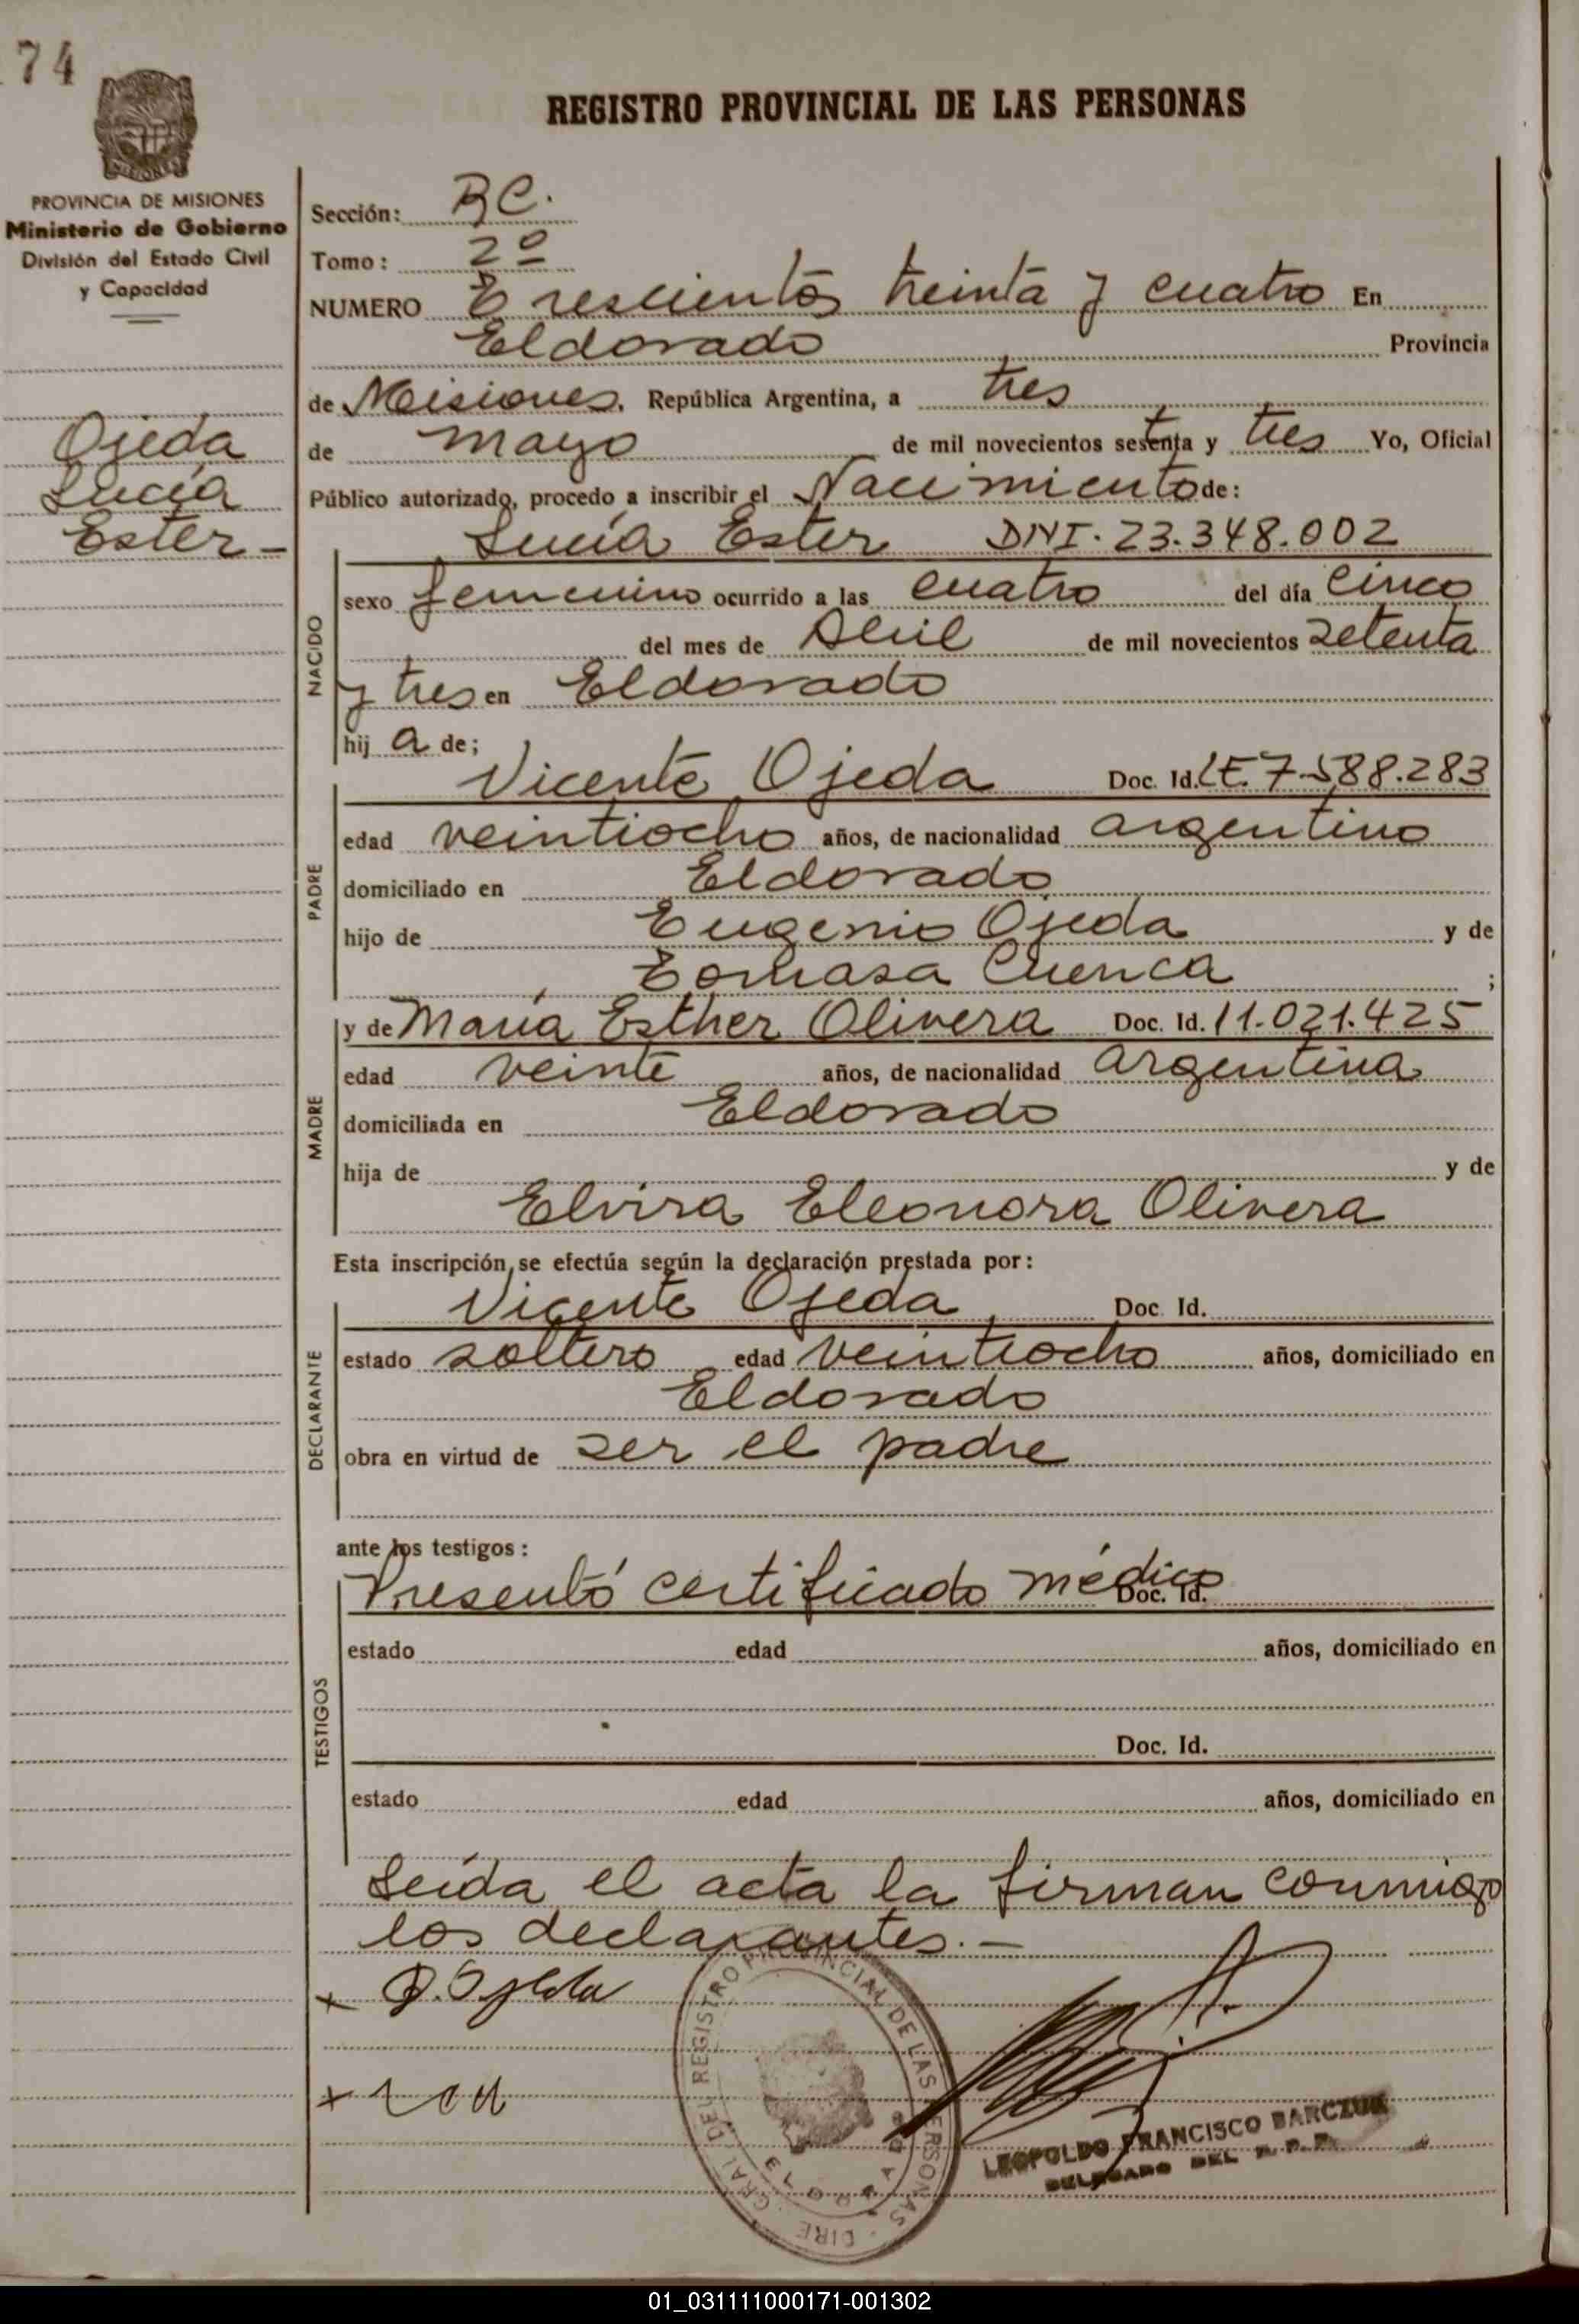 74
REGISTRO PROVINCIAL DE LAS PERSONAS
PROVINCIA DE MISIONES
Ministerio de Gobierno
División del Estado Civil
y Capacidad
Ojeda
Lucía
Ester -
Sección: BC.
Tomo: 2º
NUMERO Trescientos treinta y cuatro En
Eldorado Provincia
de Misiones, República Argentina, a tres
de mayo de mil novecientos sesenta y tres Yo, Oficial
Público autorizado, procedo a inscribir el Nacimiento de:
Lucía Ester DNI. 23.348.002
NACIDO
sexo femenino ocurrido a las cuatro del día cinco
del mes de Abril de mil novecientos setenta
y tres en Eldorado
hij a de;
Vicente Ojeda Doc. Id. LE. 7.588.283
PADRE
edad veintiocho años, de nacionalidad argentino
domiciliado en Eldorado
hijo de Eugenio Ojeda y de
Tomasa Cuenca ;
y de María Esther Olivera Doc. Id. 11.021.425
MADRE
edad veinte años, de nacionalidad argentina
domiciliada en Eldorado
hija de y de
Elvira Eleonora Olivera
Esta inscripción se efectúa según la declaración prestada por:
Vicente Ojeda Doc. Id.
DECLARANTE
estado soltero edad veintiocho años, domiciliado en
Eldorado
obra en virtud de ser el padre
ante los testigos:
Presentó certificado médico Doc. Id.
TESTIGOS
estado edad años, domiciliado en
Doc. Id.
estado edad años, domiciliado en
Leída el acta la firman conmigo
los declarantes. -
+ Ojeda
+
DIRE. GRAL. DEL REGISTRO PROVINCIAL DE LAS PERSONAS
ELDORADO
LEOPOLDO FRANCISCO BARCZUK
DELEGADO DEL R. P. P.
01_031111000171-001302